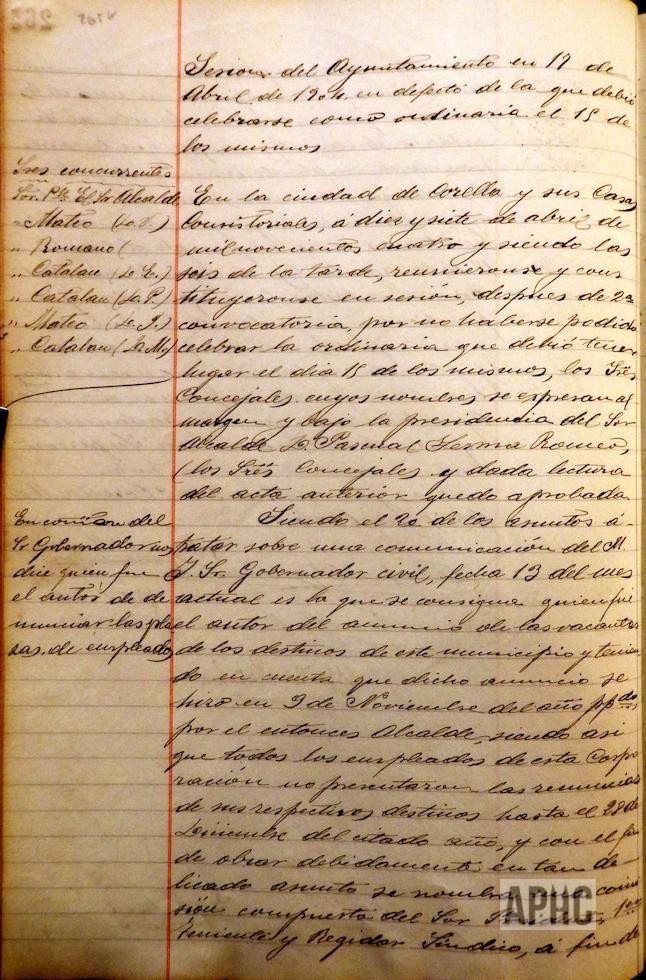 Sesion del Ayuntamiento en 17 de
Abril de 1904 en defecto de la que debió
celebrarse como ordinaria el 15 de
los mismos
Sres concurrentes
Sor. Pte. El Sr Alcalde
" Mateo (D. )
" Romano (
" Catalan (D. E.)
" Catalan (D. P.)
" Mateo (D. J.)
" Catalan (D. M.)
En la ciudad de Corella y sus Casas
Consistoriales, á diez y siete de abril de
mil novecientos cuatro y siendo las
seis de la tarde, reunieronse y cons
tituyeronse en sesión, despues de 2ª
convocatoria, por no haberse podido
celebrar la ordinaria que debió tener
lugar el dia 15 de los mismos, los Sres
Concejales cuyos nombres se expresan al
margen y bajo la presidencia del Sor
Alcalde D. Pascual Serma Romeo,
los Sres Concejales y dada lectura
del acta anterior quedo aprobada
En del
Sr Gobernador nos
dice quien fue
el autor de de
nunciar las pla
zas de empleados
Siendo el 2o de los asuntos á
tratar sobre una comunicación del M.
I. Sr. Gobernador civil, fecha 13 del mes
actual es la que se consigna quien fué
el autor del anuncio de las vacantes
de los destinos de este municipio y tenien
do en cuenta que dicho anuncio se
hizo en 3 de Noviembre del año ppdo
por el entonces Alcalde, siendo asi
que todos los empleados de esta Corpo
ración no presentaron las renuncias
de sus respectivos destinos hasta el 28 de
Diciembre del citado año, y con el fin
de obrar debidamente en tan de-
licado asunto se nombra una comi
sión compuesta del Sor 1er
teniente y Regidor Síndico, á fin de
APHC